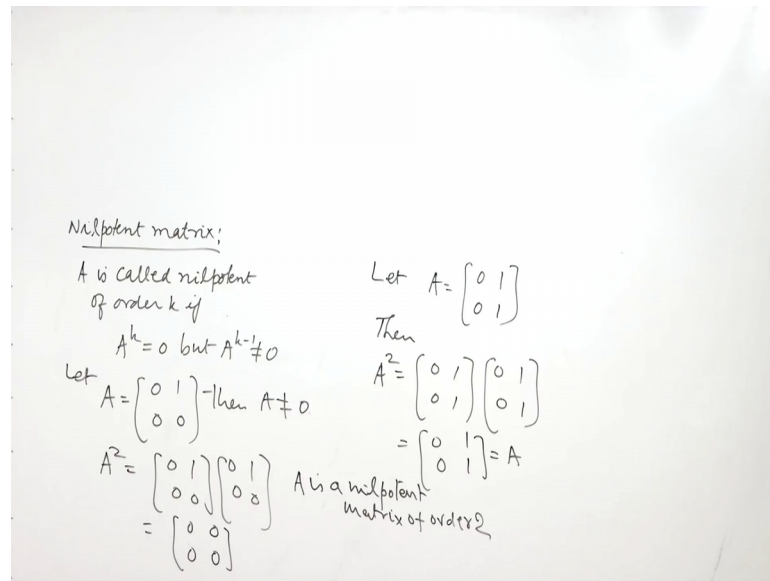 Nilpotent matrix:
A is called nilpotent
of order k if
A^k = 0 but A^k-1 ≠ 0
Let
A = [0 1
0 0] then A ≠ 0
A^2 = [0 1
0 0] [0 1
0 0]
= [0 0
0 0]
A is a nilpotent
matrix of order 2
Let A = [0 1
0 1]
Then
A^2 = [0 1
0 1] [0 1
0 1]
= [0 1
0 1] = A